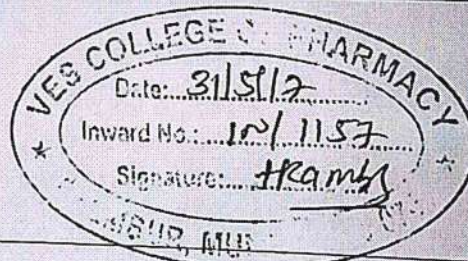 VES COLLEGE OF PHARMACY
Date: 31/5/17
Inward No.: IN/1157
Signature:
MUM